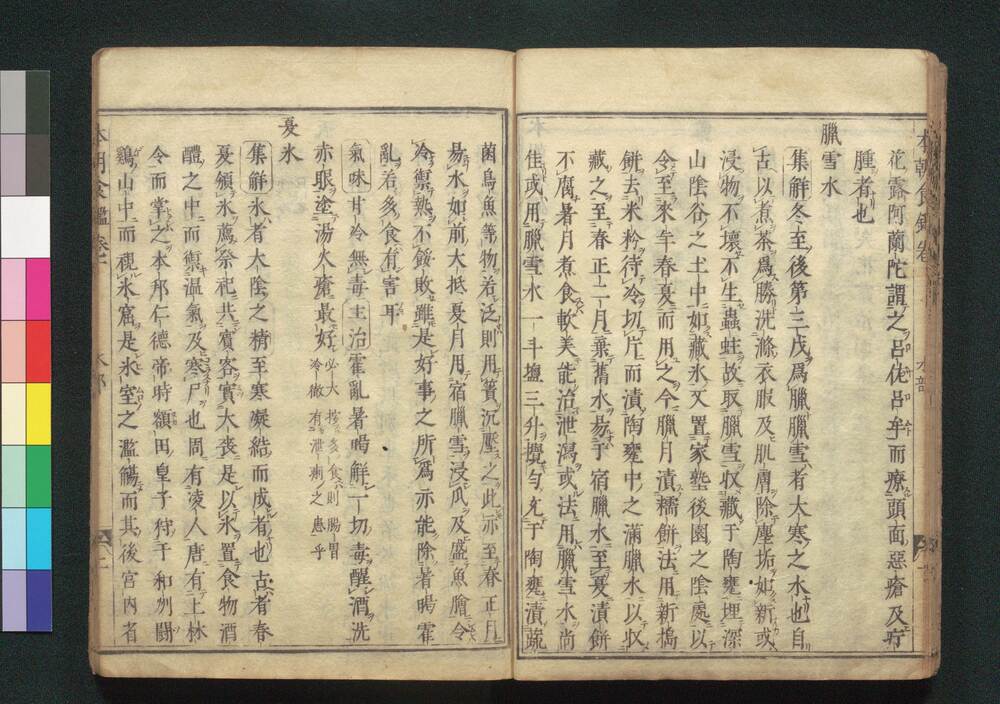 花露阿蘭陀謂之呂佐呂牟而療頭面惡瘡及疔
腫者也
臘雪水
集解冬至後第三戊爲臘臘雪者大寒之水也自
古以煮茶爲勝洗滌衣服及肌膚除塵垢如新或
浸物不壞不生蟲蛀故取臘雪収藏于陶甕埋深
山陰谷之土中如藏氷又置家塾後園之陰處以
令至來年春夏而用之今臘月漬糯餅法用新搗
餅去米粉待冷切片而漬陶甕中之滿臘水以収
藏之至春正二月棄舊水易于宿臘水至夏漬餅
不腐暑月煮食軟美能治泄瀉或法用臘雪水尚
佳或用臘雪水一斗塩三升攪勻充于陶甕漬蔬
菌鳥魚等物若泛則用簀沉壓之此亦至春正月
易水如前大抵夏月用宿臘雪浸瓜及盛魚膾令
冷禦熟不餒敗雖是好事之所爲亦能除暑暍霍
亂治多食有害耳
氣味甘冷無毒主治霍亂暑暍解一切毒醒酒洗
赤眼塗湯火瘡最好必大按多食則腸胃冷徹有泄痢之患乎
夏氷
集解氷者大陰之精至寒凝結而成者也古者春
夏頒氷薦祭祀共賓客實大喪是以氷置食物酒
醴之中而禦温氣及寒尸也周有凌人唐有上林
令而掌之本邦仁德帝時額田皇子狩于和州鬪
鷄山中而視氷窟是氷室之濫觴而其後宮内省
本朝食鑑卷一
水部
本朝食鑑卷
水部